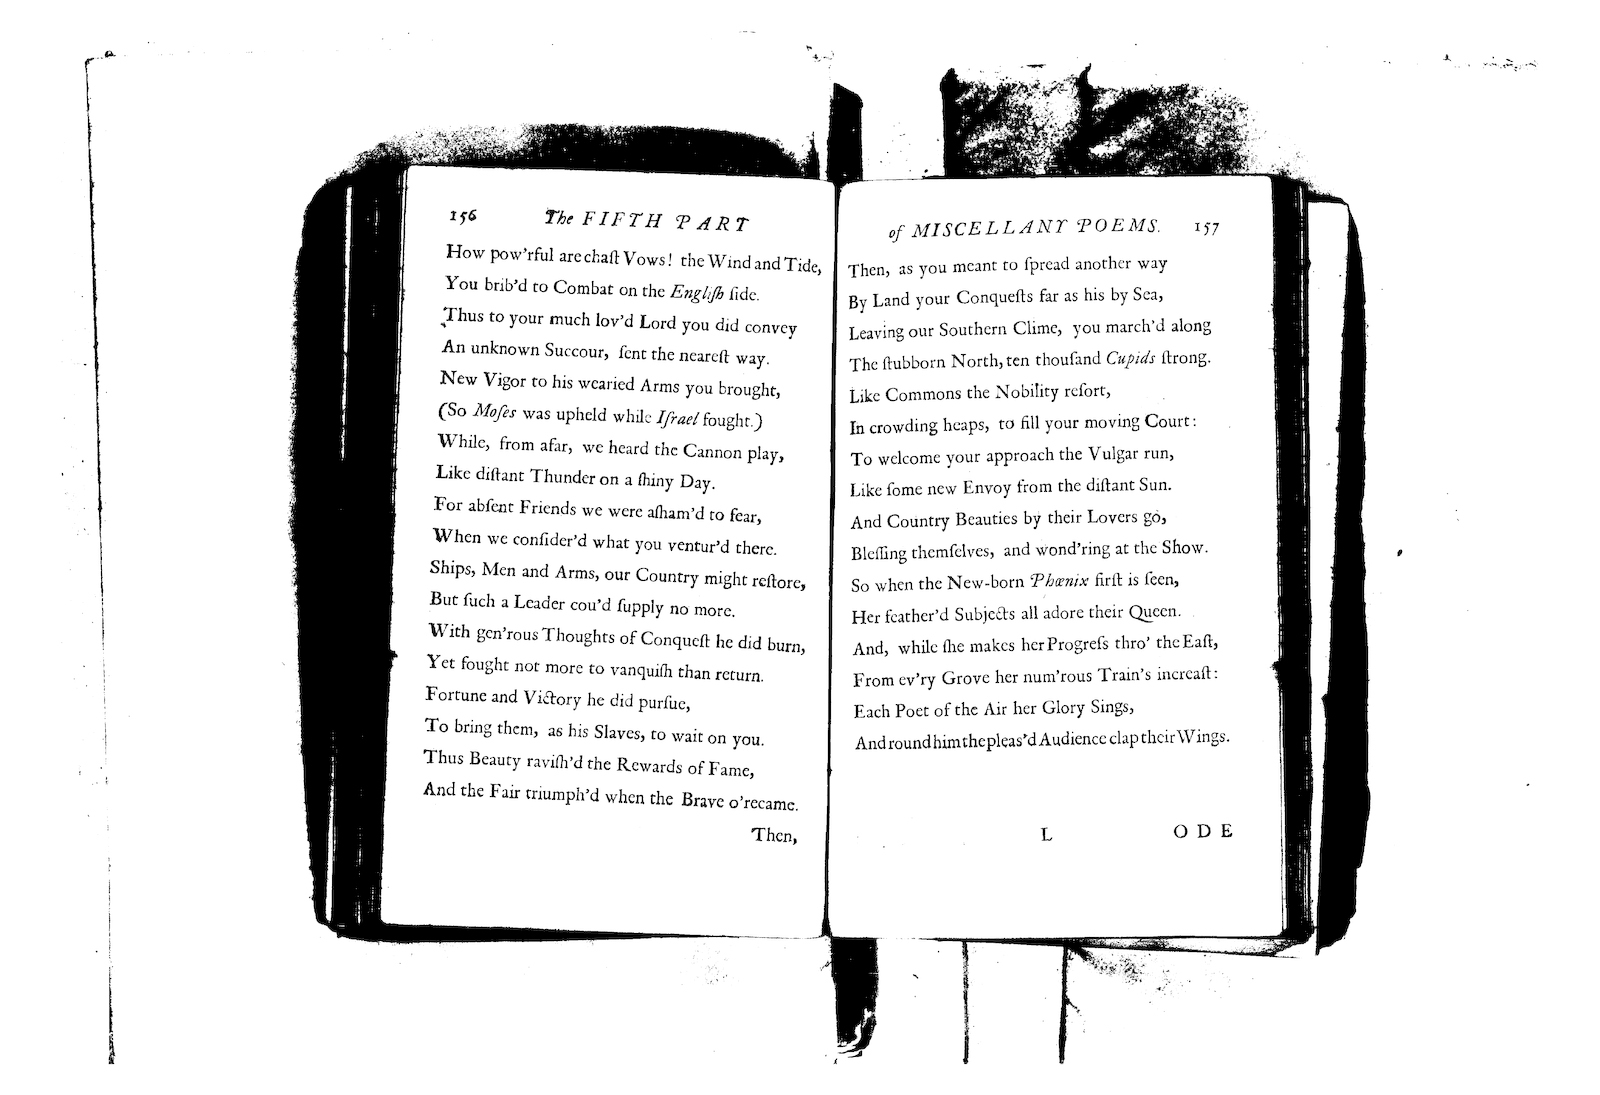 156 The FIFTH PART
How pow'rful are chaſt Vows! the Wind and Tide,
You brib'd to Combat on the Engliſh ſide.
Thus to your much lov'd Lord you did convey
An unknown Succour, ſent the neareſt way.
New Vigor to his wearied Arms you brought,
(So Moſes was upheld while Iſrael fought.)
While, from afar, we heard the Cannon play,
Like diſtant Thunder on a ſhiny Day.
For abſent Friends we were aſham'd to fear,
When we conſider'd what you ventur'd there.
Ships, Men and Arms, our Country might reſtore,
But ſuch a Leader cou'd ſupply no more.
With gen'rous Thoughts of Conqueſt he did burn,
Yet fought not more to vanquiſh than return.
Fortune and Victory he did purſue,
To bring them, as his Slaves, to wait on you.
Thus Beauty raviſh'd the Rewards of Fame,
And the Fair triumph'd when the Brave o'recame.
Then,
of MISCELLANY POEMS. 157
Then, as you meant to ſpread another way
By Land your Conqueſts far as his by Sea,
Leaving our Southern Clime, you march'd along
The ſtubborn North, ten thouſand Cupids ſtrong.
Like Commons the Nobility reſort,
In crowding heaps, to fill your moving Court:
To welcome your approach the Vulgar run,
Like ſome new Envoy from the diſtant Sun.
And Country Beauties by their Lovers go,
Bleſſing themſelves, and wond'ring at the Show.
So when the New-born Phœnix firſt is ſeen,
Her feather'd Subjects all adore their Queen.
And, while ſhe makes her Progreſs thro' the Eaſt,
From ev'ry Grove her num'rous Train's increaſt:
Each Poet of the Air her Glory Sings,
And round him the pleas'd Audience clap their Wings.
L ODE